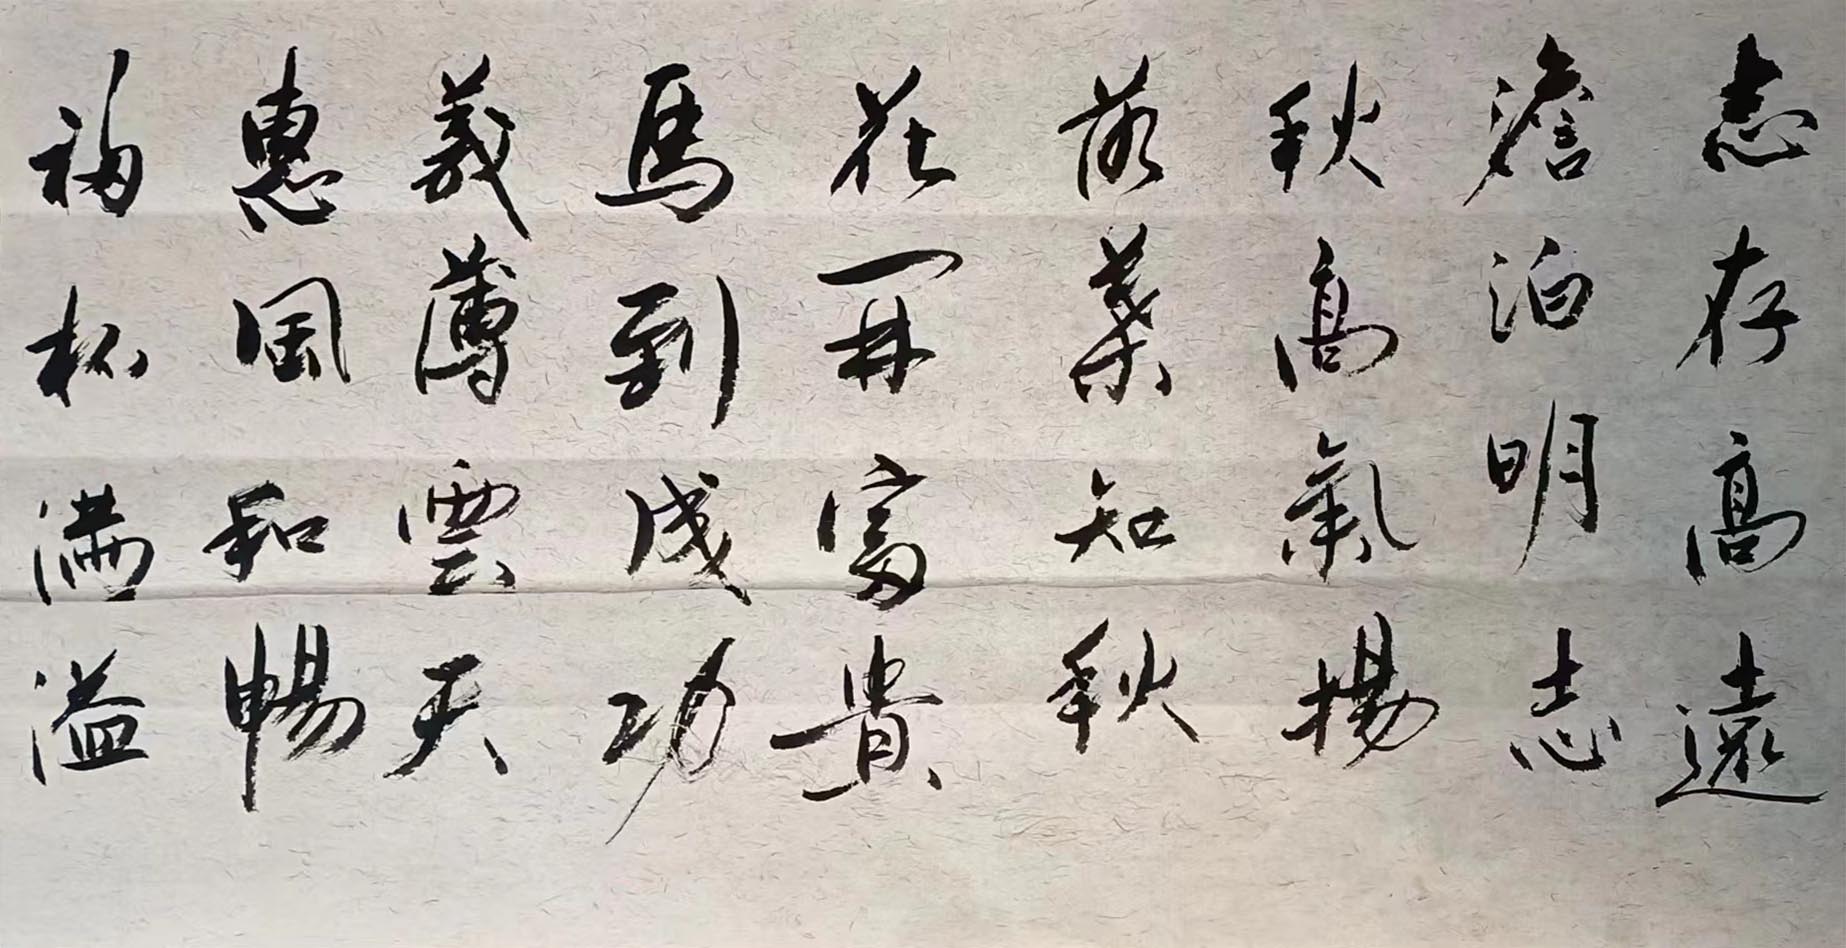 志存高遠
澹泊明志
秋高氣揚
落葉知秋
花開富貴
馬到成功
義薄雲天
惠風和暢
福杯滿溢